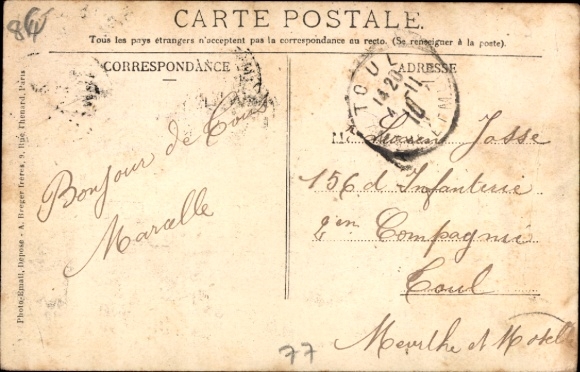 84
CARTE POSTALE.
Tous les pays étrangers n'acceptent pas la correspondance au recto. (Se renseigner à la poste).
CORRESPONDANCE
ADRESSE
TOUL
14 20
11
10
Bonjour de
Marcelle
M. Lucien Josse
156 d Infanterie
2 en Compagnie
Toul
Meurthe et Moselle
77
Photo-Email, Déposé - A. Breger frères, 9, Rue Thénard, Paris